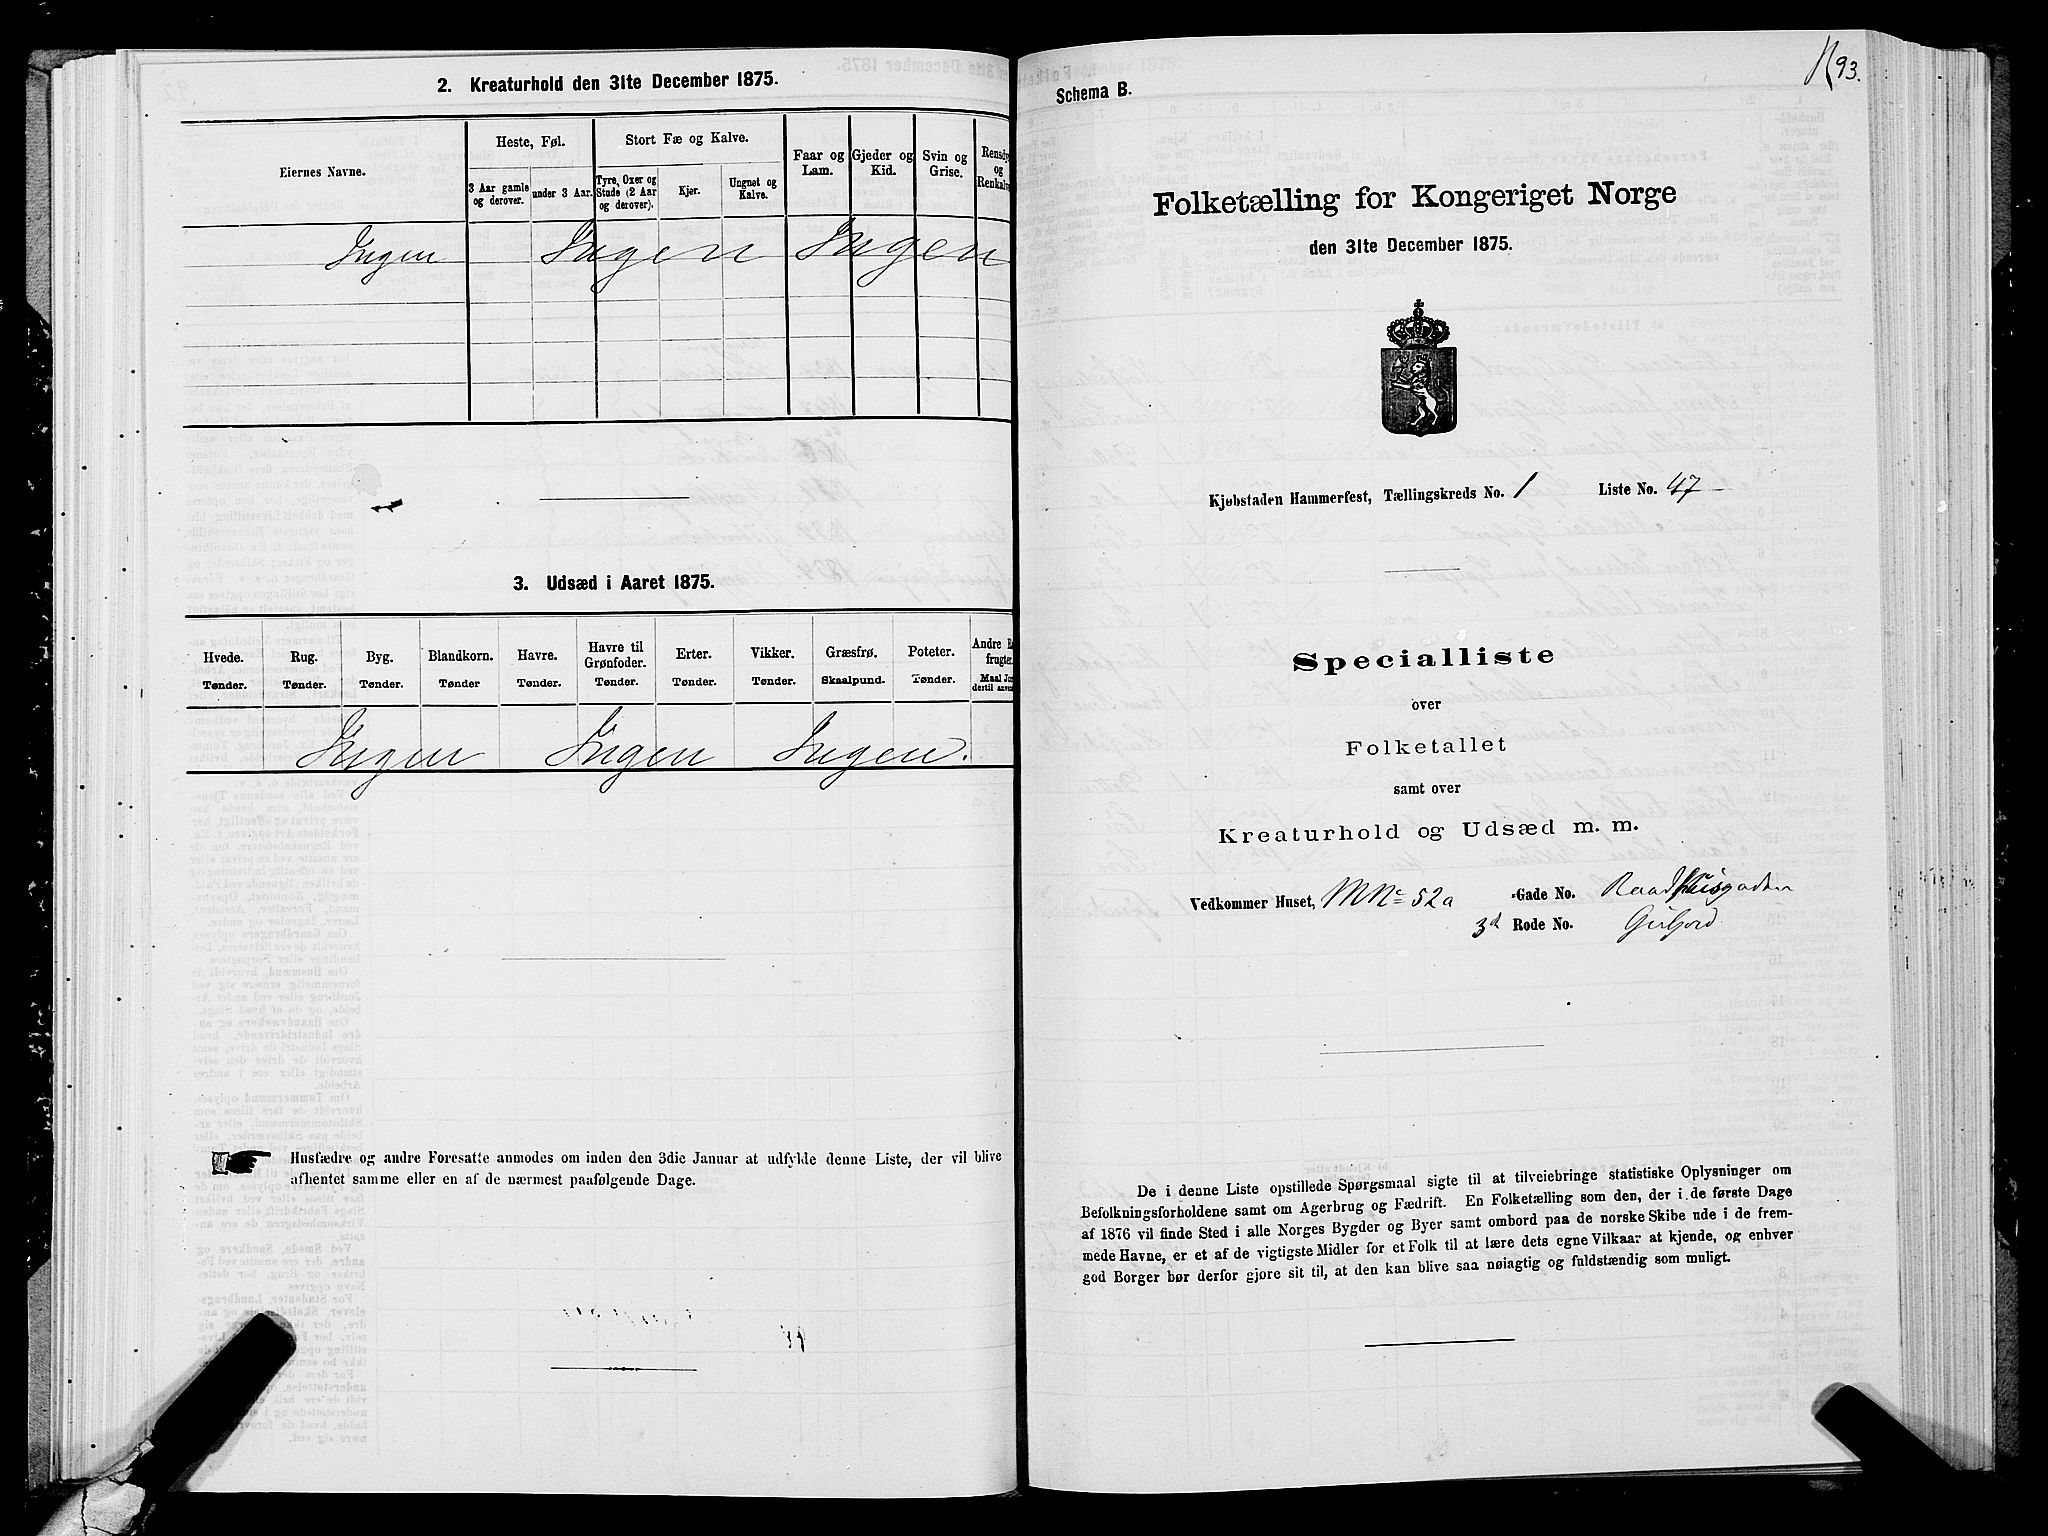 2. Kreaturhold den 31te December 1875.
Eiernes Navne.
Heste, Føl.
3 Aar gamle og derover.
under 3 Aar.
Stort Fæ og Kalve.
Tyre, Oxer og Stude (2 Aar og derover).
Kjør.
Ungnøt og Kalve.
Faar og Lam.
Gjeder og Kid.
Svin og Grise.
Rensdy
og
Renkalve
Ingen Ingen Ingen
3. Udsæd i Aaret 1875.
Hvede. Rug. Byg. Blandkorn. Havre. Havre til Grønfoder. Erter. Vikker. Græsfrø. Poteter. Andre
frugter.
Tønder. Tønder. Tønder. Tønder Tønder. Tønder. Tønder. Tønder. Skaalpund. Tønder. Maal
dertil
Ingen Ingen Ingen.
Husfædre og andre Foresatte anmodes om inden den 3die Januar at udfylde denne Liste, der vil blive
afhentet samme eller en af de nærmest paafølgende Dage.
93.
Schema B.
Folketælling for Kongeriget Norge
den 31te December 1875.
Kjøbstaden Hammerfest, Tællingskreds No. 1 Liste No. 47
Specialliste
over
Folketallet
samt over
Kreaturhold og Udsæd m. m.
Vedkommer Huset, MNo 52a -Gade No. Raadhusgaden
3d Rode No.
De i denne Liste opstillede Spørgsmaal sigte til at tilveiebringe statistiske Oplysninger om
Befolkningsforholdene samt om Agerbrug og Fædrift. En Folketælling som den, der i de første Dage
af 1876 vil finde Sted i alle Norges Bygder og Byer samt ombord paa de norske Skibe ude i de frem-
mede Havne, er et af de vigtigste Midler for et Folk til at lære dets egne Vilkaar at kjende, og enhver
god Borger bør derfor gjøre sit til, at den kan blive saa nøiagtig og fuldstændig som muligt.